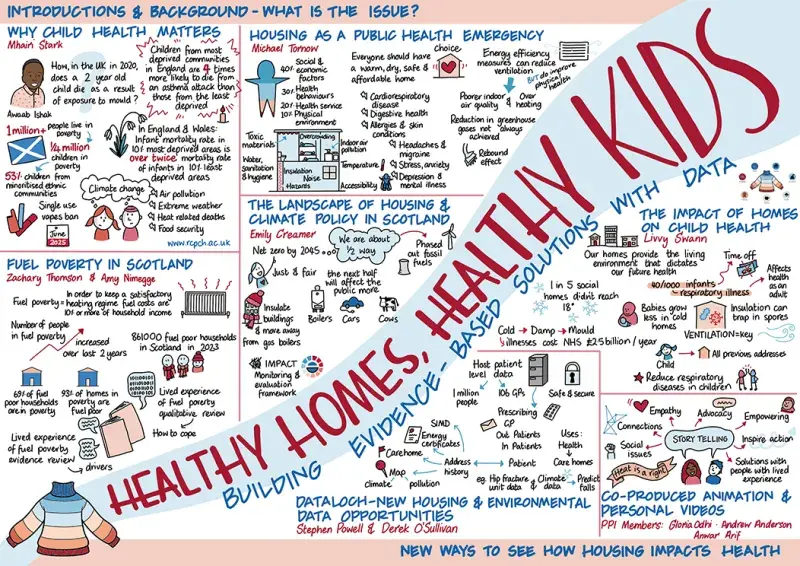 INTRODUCTIONS & BACKGROUND - WHAT IS THE ISSUE?
WHY CHILD HEALTH MATTERS
Mhairi Stark
How, in the UK in 2020,
does a 2 year old
child die as a result
of exposure to mould?
Awaab Ishak
Children from most
deprived communities
in England are 4 times
more likely to die from
an asthma attack than
those from the least
deprived
1 million+ people live in
poverty
1/4 million
children in
poverty
53% children from
minoritised ethnic
communities
In England & Wales:
Infant mortality rate in
10% most deprived areas is
over twice mortality rate
of infants in 10% least
deprived areas
Climate change
Air pollution
Extreme weather
Heat related deaths
Food security
Single use
vapes ban
June
2025
www.rcpch.ac.uk
HOUSING AS A PUBLIC HEALTH EMERGENCY
Michael Tornow
40% Social &
economic
factors
30% Health
behaviours
20% Health service
10% Physical
environment
Everyone should have choice
a warm, dry, safe &
affordable home
Cardiorespiratory
disease
Digestive health
Allergies & skin
conditions
Headaches &
migraine
Stress, anxiety
Depression &
mental illness
Toxic
materials
Water,
sanitation
& hygiene
Overcrowding
Insulation
Noise
Hazards
Indoor air
pollution
Temperature
Accessibility
Energy efficiency
measures can reduce
ventilation
BUT do improve
physical
health
Poorer indoor & Over
air quality heating
Reduction in greenhouse
gases not always
achieved
Rebound
effect
HEALTHY HOMES, HEALTHY KIDS
BUILDING EVIDENCE-BASED SOLUTIONS WITH DATA
THE LANDSCAPE OF HOUSING &
CLIMATE POLICY IN SCOTLAND
Emily Creamer
Net zero by 2045
We are about
1/2 way
Phased
out fossil
fuels
Just & fair
the next half
will affect the
public more
Insulate
buildings
& move away
from gas boilers
Boilers
Cars
Cows
IMPACT
Monitoring &
evaluation
framework
THE IMPACT OF HOMES
ON CHILD HEALTH
Livvy Swann
Our homes provide the living
environment that dictates
our future health
Time off
Affects
health
as an
adult
40/1000 infants
respiratory illness
1 in 5 social
homes didn't reach
18°
Babies grow
less in cold
homes
Insulation can
trap in spores
VENTILATION = key
Cold → Damp → Mould
illnesses cost NHS £2.5 billion / year
Child
All previous addresses
Reduce respiratory
diseases in children
FUEL POVERTY IN SCOTLAND
Zachary Thomson & Amy Nimegge
Fuel poverty = In order to keep a satisfactory
heating regime fuel costs are
10% or more of household income
Number of people
in fuel poverty
increased
over last 2 years
861000 fuel poor households
in Scotland in 2023
69% of fuel
poor households
are in poverty
93% of homes in
poverty are
fuel poor
Lived experience
of fuel poverty
qualitative review
How to cope
Lived experience
of fuel poverty
evidence review
drivers
Host patient
level data
1 million
people
106 GPs
Safe & secure
Prescribing
GP
Out Patients
In Patients
Patient
SIMD
Energy
certificates
Carehome
Map
Address
history
Climate
pollution
Uses:
Health
Care homes
eg. Hip fracture & Climate
unit data data
Predict
falls
DATALOCH - NEW HOUSING & ENVIRONMENTAL
DATA OPPORTUNITIES
Stephen Powell & Derek O'Sullivan
Empathy
Advocacy
Empowering
Connections
STORY TELLING
Inspire action
Social
issues
Heat is a right
Solutions with
people with lived
experience
CO-PRODUCED ANIMATION &
PERSONAL VIDEOS
PPI Members: Gloria Odhi · Andrew Anderson
Anwar Arif
NEW WAYS TO SEE HOW HOUSING IMPACTS HEALTH